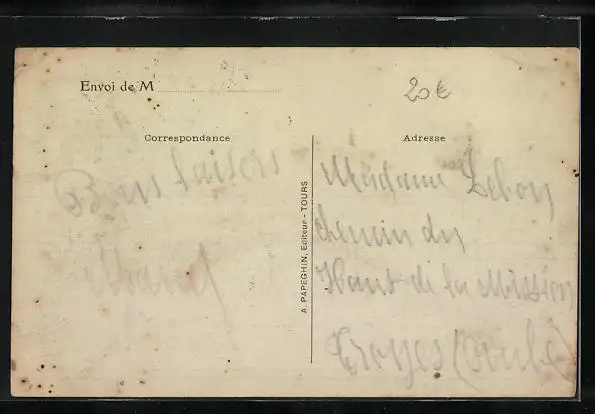 Envoi de M
20€
Correspondance
Adresse
Bons baisers
Marcel
A. PAPEGHIN, Editeur - TOURS
Madame Lebon
chemin du
Haut de la Mission
Troyes (Aube)